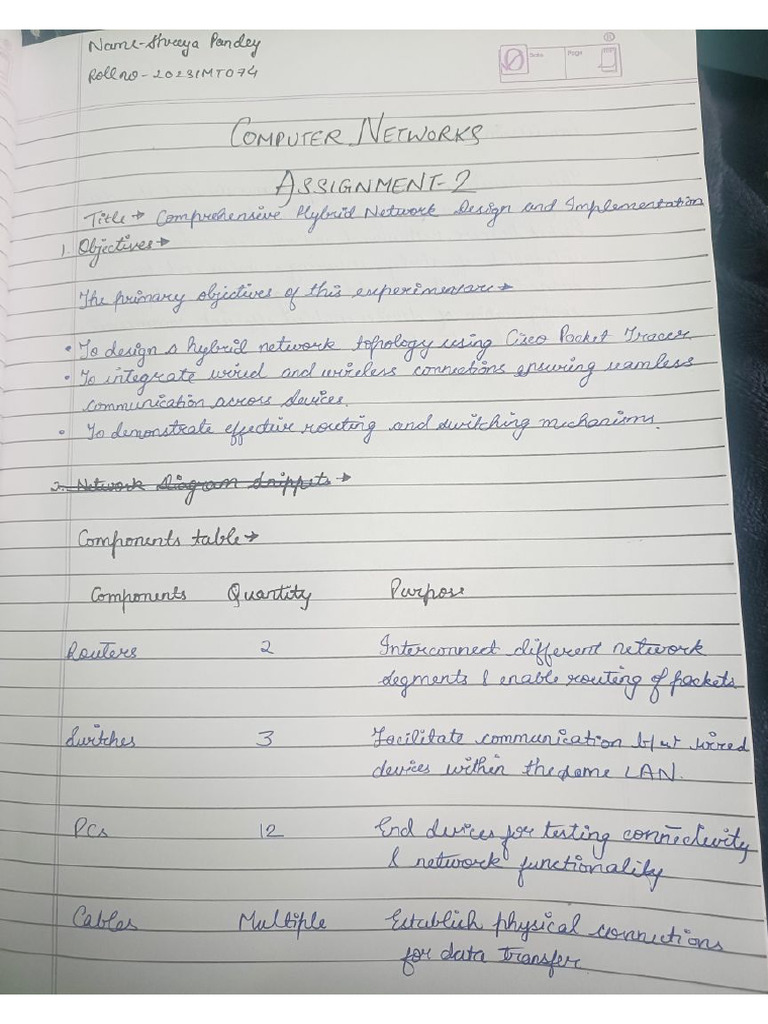 Name-Shreya Pandey
Roll no - 2023IMT074
Date
Page
COMPUTER NETWORKS
ASSIGNMENT-2
Title → Comprehensive Hybrid Network Design and Implementation
1. Objectives →
The primary objectives of this experiment are →
• To design a hybrid network topology using Cisco Packet Tracer.
• To integrate wired and wireless connections ensuring seamless
communication across devices.
• To demonstrate effective routing and switching mechanisms.
2. Network Diagram Snippets →
Components table →
Components Quantity Purpose
Routers 2 Interconnect different network
segments & enable routing of packets
Switches 3 Facilitate communication b/w wired
devices within the same LAN.
PCs 12 End devices for testing connectivity
& network functionality
Cables Multiple Establish physical connections
for data transfer